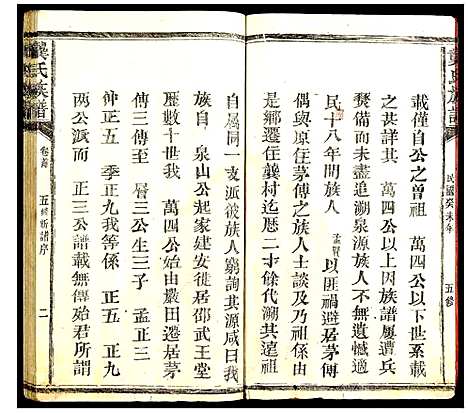 龔氏族譜
民國癸未年
五修
載僅自公之曾祖 萬四公以下世系載
之甚詳其 萬四公以上因族譜屢遭兵
燹備而未盡追溯泉源族人不無遺憾適
民十八年間族人 孟賢 以匪禍避居茅傅
偶與原居茅傅之族人士談及乃祖係由
是鄉遷住龔村迄歷二十餘代溯其遠源
自屬同一支派彼族人窮詢其源咸曰我
族自 泉山公起家建安徙居邵武王堂
歷數十世我 萬四公始由嚴田遷居茅
傅三傳至 層三公生三子 孟正三
仲正五 季正九我等係 正五 正九
兩公派而 正三公譜載無傳始君所謂
龔氏族譜
卷首
五修新譜序
二